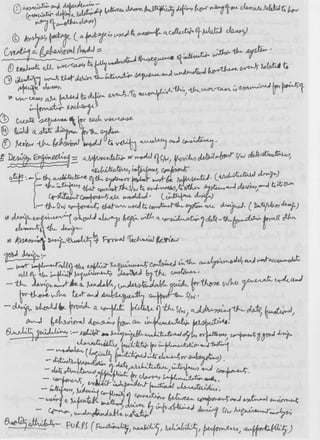 ① association and dependencies -
(association defines a relationship between classes. Multiplicity defines how many of one class are related to how
many of another class)
⑥ Analysis package (a package is used to assemble a collection of related classes)
Creating a Behavioral Model =
① evaluate all use-cases to fully understand the sequence of interaction within the system.
② identify events that drive the interaction sequence and understand how these events related to
specific classes.
* use-cases are parsed to define events. To accomplish this, the use-case is examined for points of
information exchange.
③ create sequence for each use-case
④ build a state diagram for the system
⑤ review the behavioral model to verify accuracy and consistency.
Design Engineering = a representation or model of s/w, provides detail about s/w data structures,
architecture, interfaces, components
steps - the architecture of the system or product must be represented. (architectural design)
- the interfaces that connect the s/w to end-users, to other systems and devices, and to its own
constituent components are modeled. (interface design)
- the s/w components that are used to construct the system are designed.
* design engineering should always begin with a consideration of data - the foundation for all other
elements of the design.
* Assessing Design Quality of Formal Technical Review
good design:-
- must implement all of the explicit requirements contained in the analysis model, and must accommodate
all of the implicit requirements desired by the customer.
- the design must be a readable, understandable guide for those who generate code and
for those who test and subsequently support the s/w.
- design should provide a complete picture of the s/w, addressing the data, functional,
and behavioral domains from an implementation perspective.
Quality guidelines :-
- modular (logically partitioned into elements or subsystems)
- distinct representation of data, architecture, interfaces and components.
- data structures appropriate for classes
- components, exhibit independent functional characteristics.
- interfaces, reducing complexity of connections between components and external environment
- using a repeatable method, driven by info. obtained during s/w requirement analysis
- understandable notation
Quality attributes - FURPS (Functionality, usability, reliability, performance, supportability)